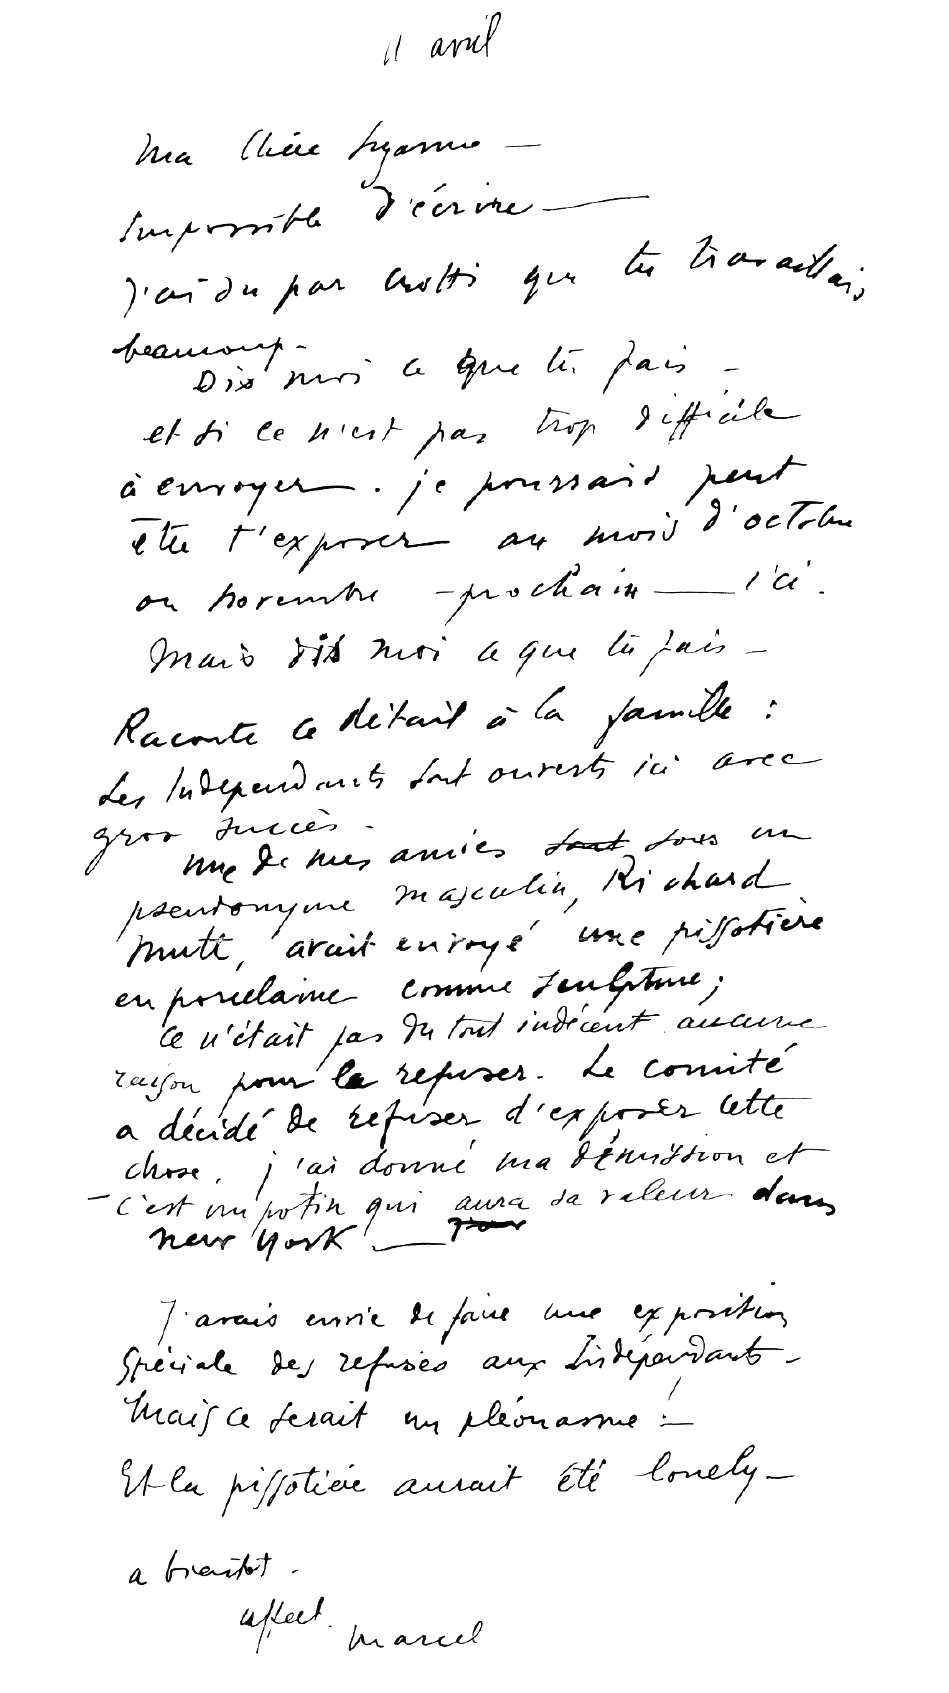 11 avril
Ma Chère Suzanne —
Impossible d'écrire —
J'ai su par Crotti que tu travaillais
beaucoup -
Dis moi ce que tu fais -
et si ce n'est pas trop difficile
à envoyer. je pourrais peut
être t'exposer au mois d'octobre
ou novembre - prochain — ici.
Mais dis moi ce que tu fais -
Raconte ce détail à la famille :
Les Indépendants sont ouverts ici avec
gros succès -
Une de mes amies sont sous un
pseudonyme masculin, Richard
Mutt, avait envoyé une pissotière
en porcelaine comme sculpture ;
Ce n'était pas du tout indécent aucune
raison pour la refuser. Le comité
a décidé de refuser d'exposer cette
chose. j'ai donné ma démission et
- c'est un potin qui aura sa valeur dans
pour
New York —
J'avais envie de faire une exposition
spéciale des refusés aux Indépendants -
Mais ce serait un pléonasme ! —
Et la pissotière aurait été lonely -
a bientôt -
affect.
Marcel